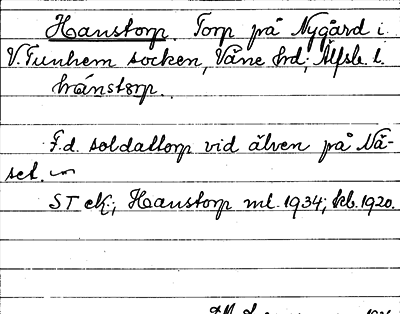 Hanstorp. Torp på Nygård i
V. Tunhem socken, Väne hd; Älfsb. l.
hránstorp.
F.d. soldattorp vid älven på Nä-
set.
ST ek; Hanstorp ml. 1934; kb. 1920.